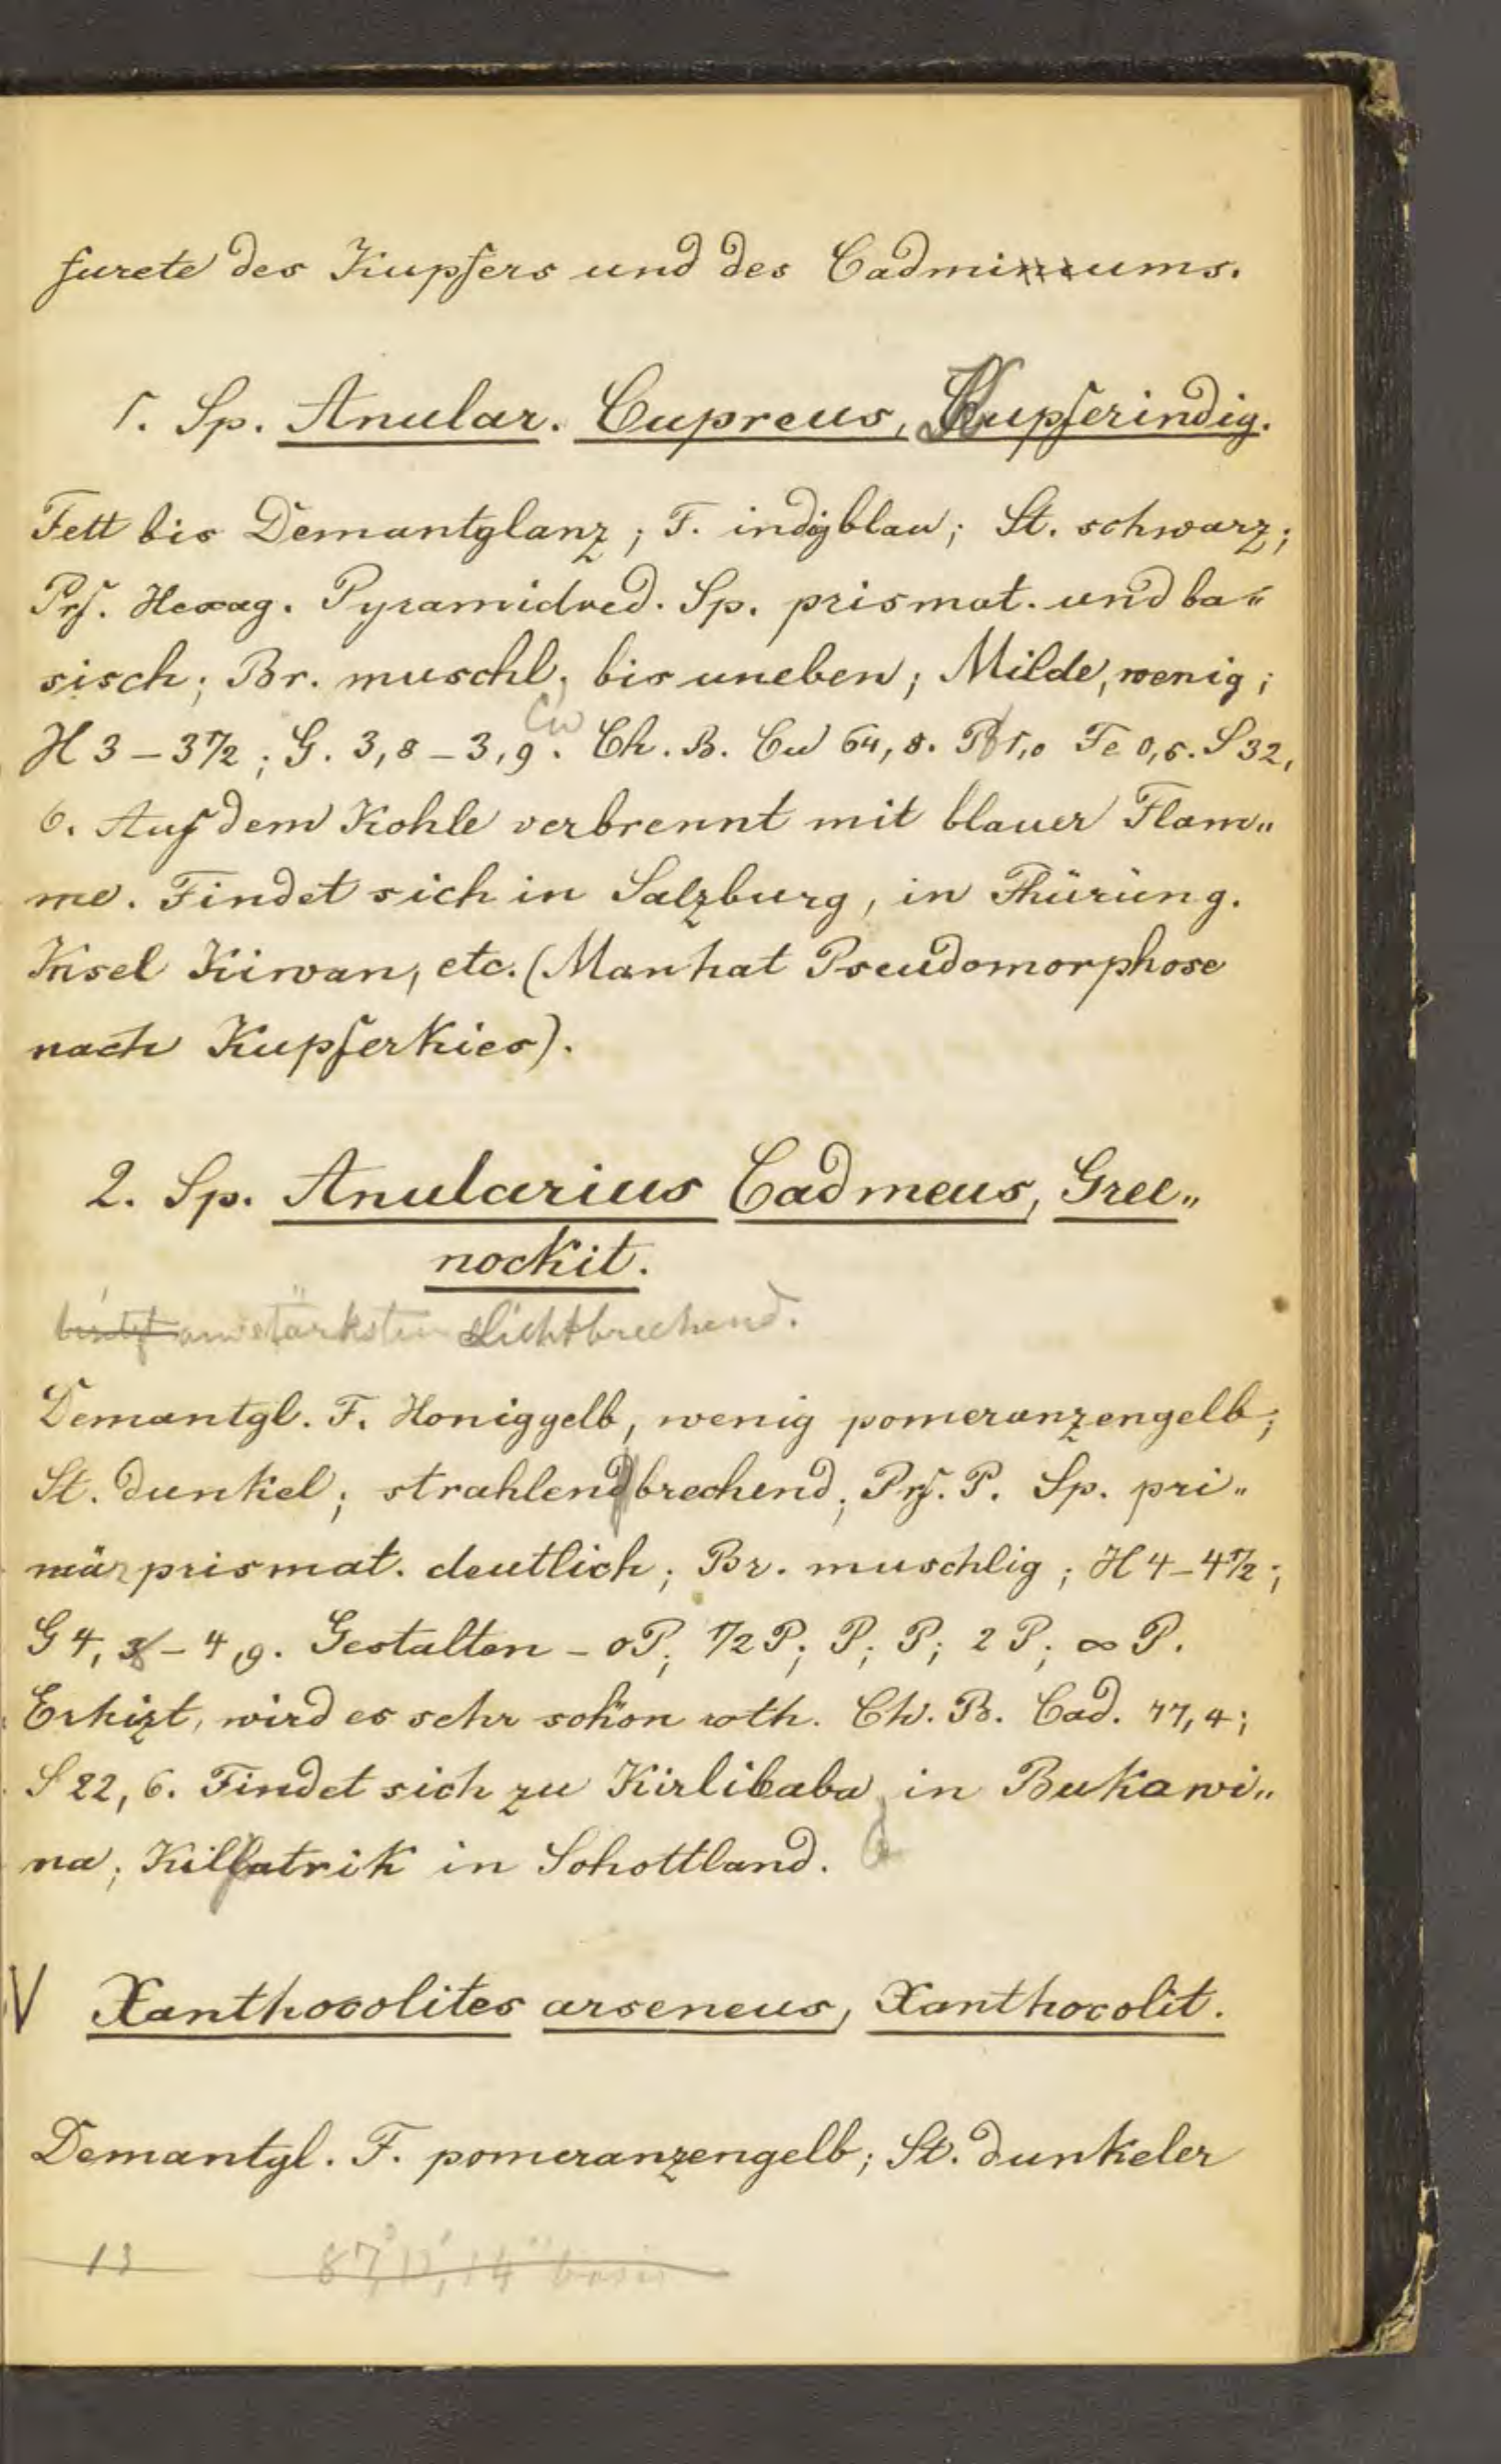 furete des Kupfers und des Cadmiums.
1. Sp. Anular. Cupreus, Kupferindig.
Fett bis Demantglanz; F. indigblau; St. schwarz;
Prf. Hexag. Pyramidred. Sp. prismat. und ba„
sisch; Br. muschl. bis uneben; Milde, wenig;
Cu
H 3 – 3 1/2; G. 3,8 – 3,9. Ch. B. Cu 64,8. Pb 1,0 Fe 0,5. S 32,
6. Auf dem Kohle verbrennt mit blauer Flam„
me. Findet sich in Salzburg, in Thüring.
Insel Kirwan, etc. (Man hat Pseudomorphose
nach Kupferkies).
2. Sp. Anularius Cadmeus, Gree„
nockit.
am stärksten Lichtbrechend.
Demantgl. F. Honiggelb, wenig pomeranzengelb;
St. dunkel; strahlenbrechend; Prf. P. Sp. pri„
mär prismat. deutlich; Br. muschlig; H 4 – 4 1/2;
G 4,8 – 4,9. Gestalten – oP; 1/2 P; P; P; 2 P; ∞ P.
Erhizt, wird es sehr schön roth. Ch. B. Cad. 77,4;
S 22,6. Findet sich zu Kirlibaba in Bukawi„
na; Killpatrik in Schottland.
V Xanthocolites arseneus, Xanthocolit.
Demantgl. F. pomeranzengelb; St. dunkeler
13 87°,12',14" basis